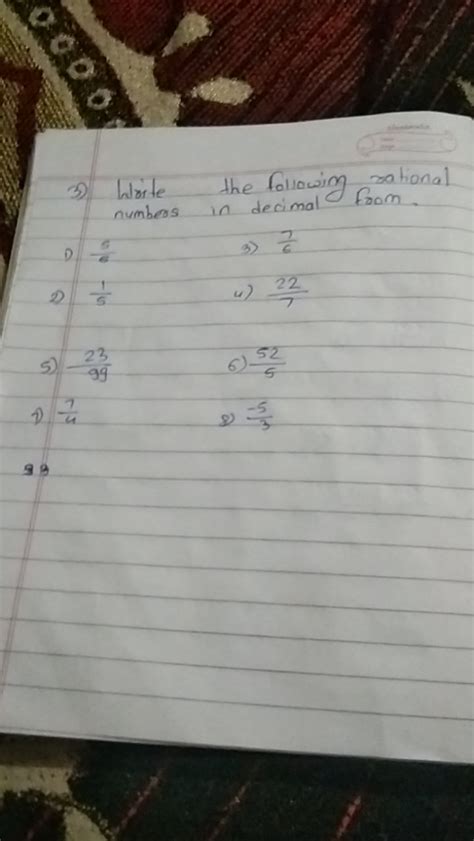 3) Write the following rational
numbers in decimal from.
1) 5/6 3) 7/6
2) 1/5 4) 22/7
5) 23/99 6) 52/5
7) 7/4 8) -5/3